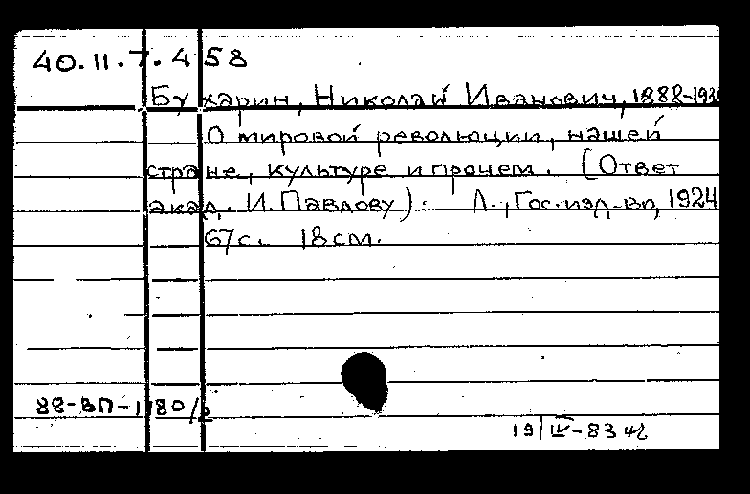 40.11.7.458
Бухарин, Николай Иванович, 1888-193
О мировой революции, нашей
стране, культуре и прочем. (Ответ
акад. И. Павлову). Л., Гос. изд-во, 1924
67с. 18см.
88-ВП-1180/2
19/IV-83